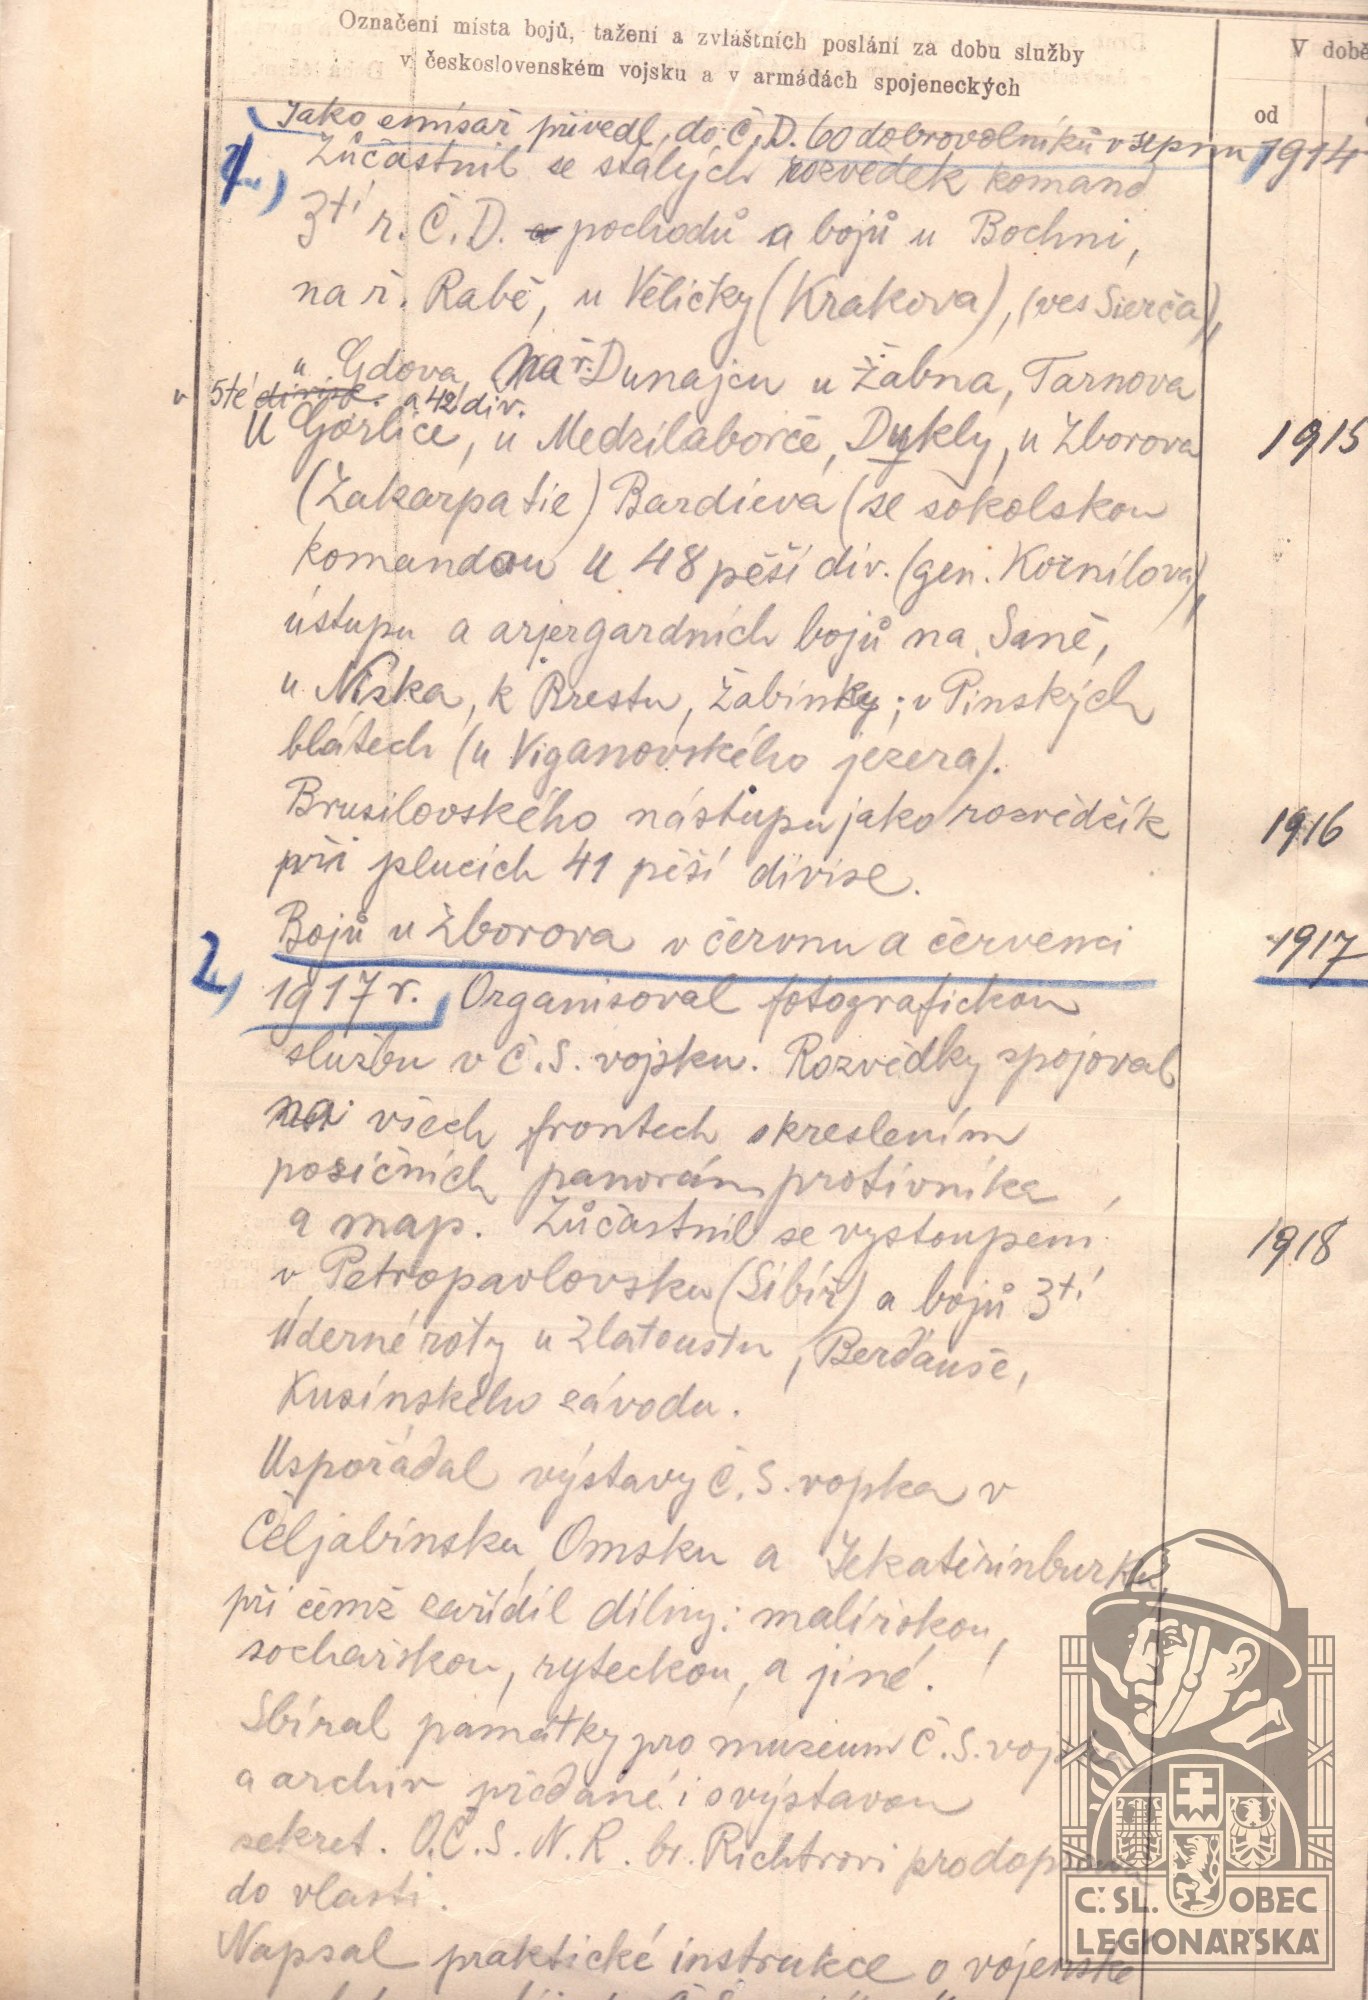 Označení místa bojů, tažení a zvláštních poslání za dobu služby
v československém vojsku a v armádách spojeneckých
V době
od
Jako emisař přivedl do Č.D. 60 dobrovolníků v srpnu 1914
1.) Zůčastnil se stálých rozvědek komand
3tí r. Č.D. a pochodů a bojů u Bochni,
na ř. Rabě, u Věličky (Krakova), (ves Sierča),
u Gdova, na ř. Dunajcu u Žabna, Tarnova
v 5té divise. a 42 div.
U Gorlice, u Medzilaborče, Dukly, u Zborova 1915
(Zakarpatie) Bardieva (se sokolskou
komandou u 48 pěší div. (gen. Kornilova),
ústupu a arjergardních bojů na Saně,
u Niska, k Brestu, Žabinky; v Pinských
blátech (u Viganovského jezera).
Brusilovského nástupu jako rozvědčík 1916
při plucích 41 pěší divise.
2.) Bojů u Zborova v červnu a červenci 1917
1917 r. Organisoval fotografickou
službu v Č.S. vojsku. Rozvědky spojoval
na všech frontech skreslením
posičních panorám protivníka
a map. Zůčastnil se vystoupení 1918
v Petropavlovsku (Sibiř) a bojů 3tí
Úderné roty u Zlatoustu, Berďauše,
Kusinského závodu.
Uspořádal výstavy Č.S. vojska v
Čeljabinsku, Omsku a Jekatěrinburku,
při čemž zařídil dílny: malířskou,
sochařskou, ryteckou, a jiné.
Sbíral památky pro museum Č.S. vojska
a archiv předané i s výstavou
sekret. O.Č.S.N.R. br. Richtrovi pro dopravu
do vlasti.
Napsal praktické instrukce o vojenské
Č. SL. OBEC
LEGIONÁŘSKÁ